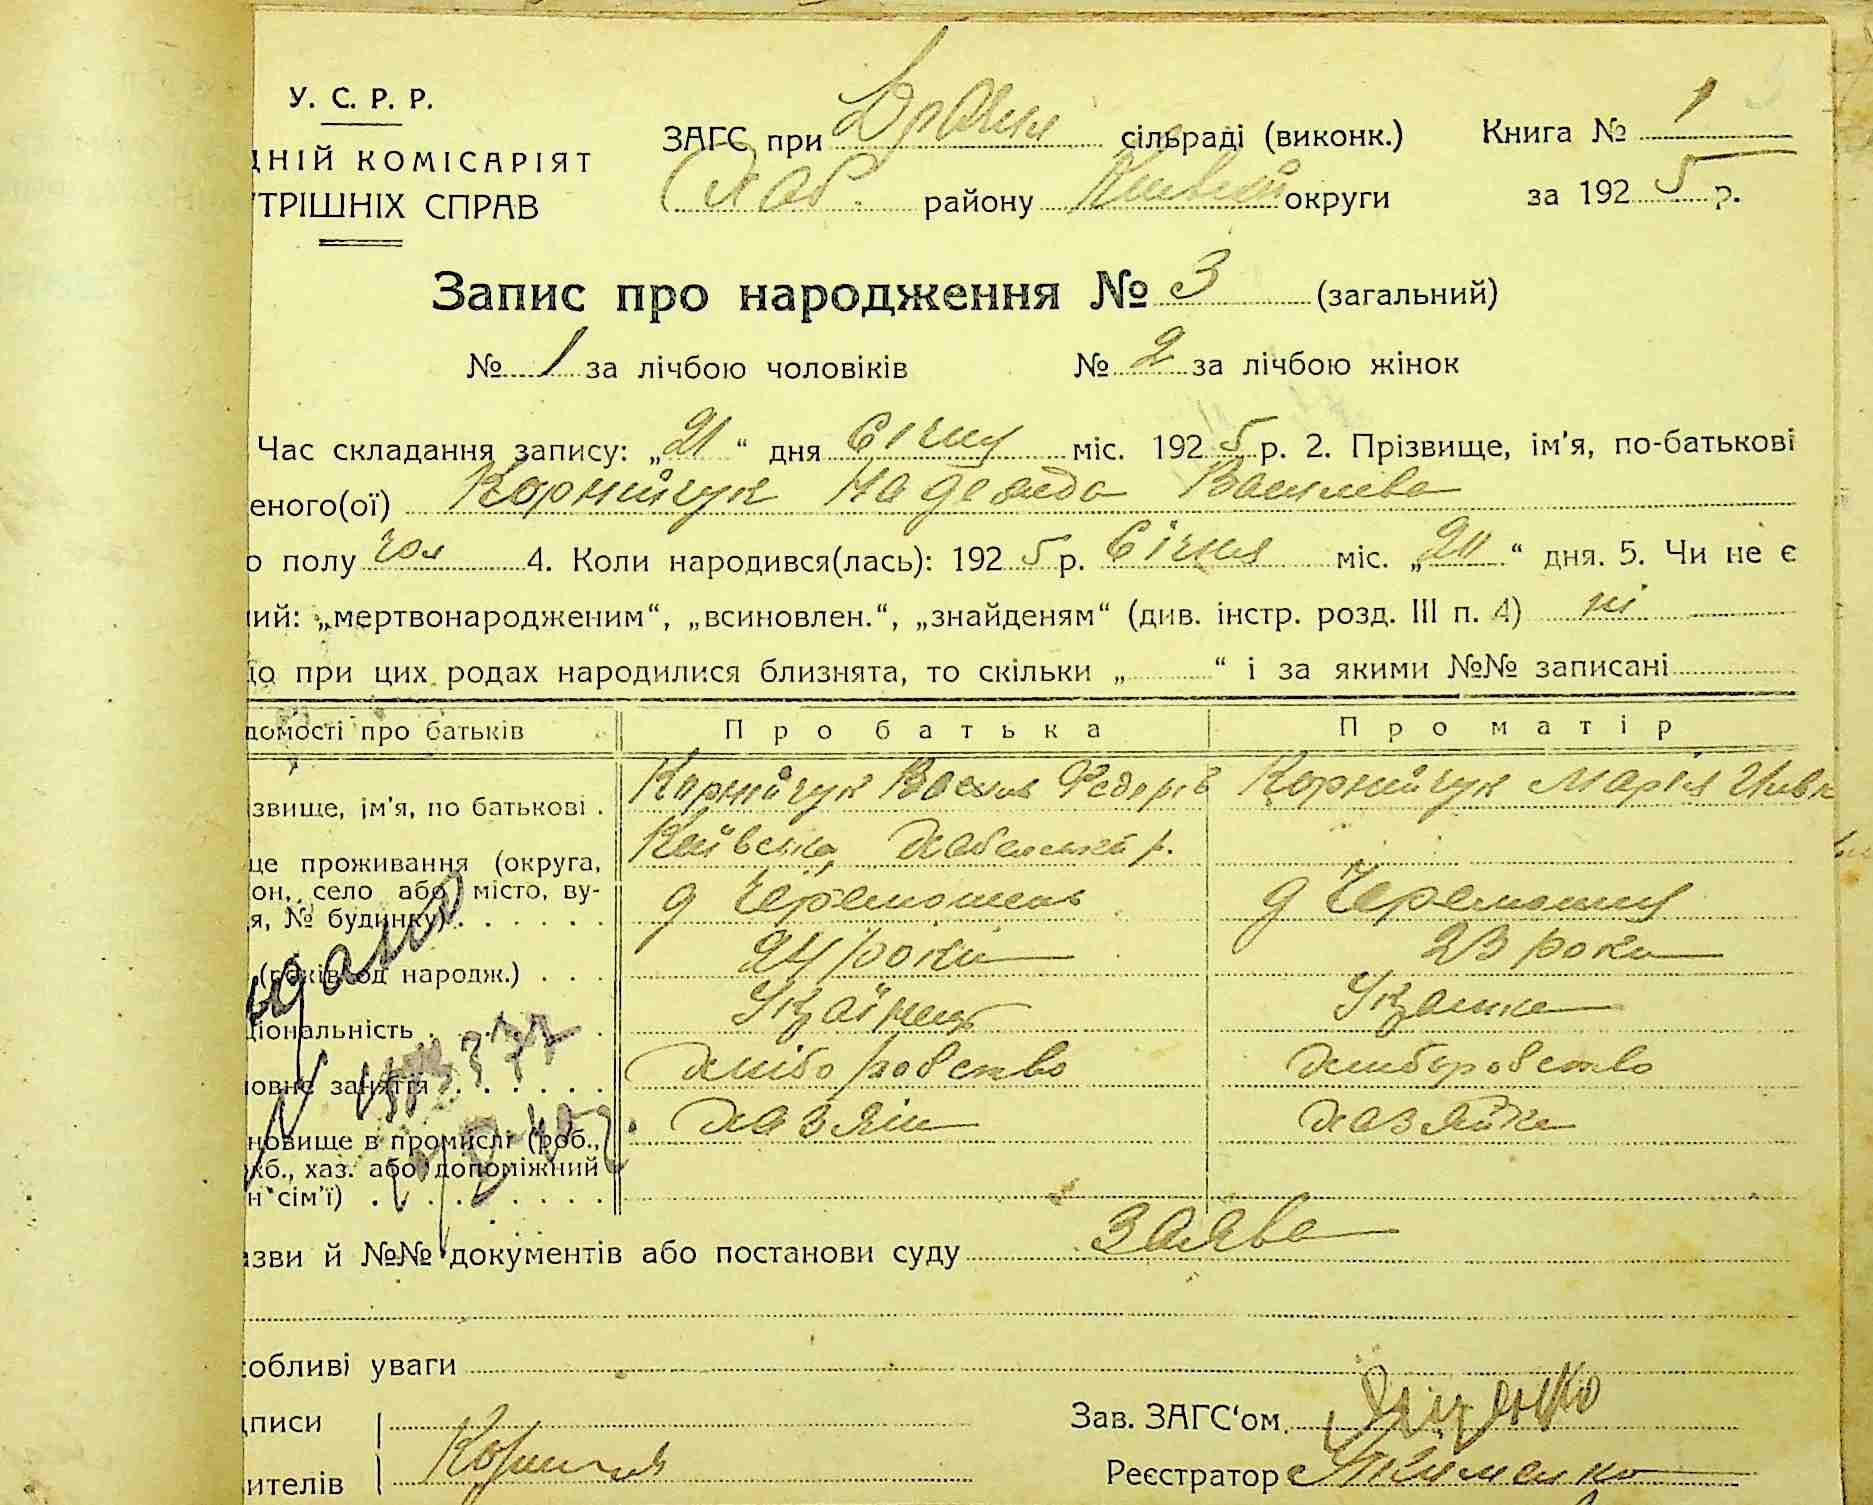 У. С. Р. Р.
ДНІЙ КОМІСАРІЯТ
ТРІШНІХ СПРАВ
ЗАГС при сільраді (виконк.) Книга № 1
Хаб. району округи за 1925 р.
Запис про народження № 3 (загальний)
№ 1 за лічбою чоловіків № 2 за лічбою жінок
Час складання запису: „21“ дня Січня міс. 1925 р. 2. Прізвище, ім'я, по-батькові
еного(ої) Корнийчук Надежда Василева
о полу 4. Коли народився(лась): 1925 р. Січня міс. „20“ дня. 5. Чи не є
ий: „мертвонародженим“, „всиновлен.“, „знайденям“ (див. інстр. розд. III п. 4) ні
о при цих родах народилися близнята, то скільки „ “ і за якими №№ записані
домості про батьків Про батька Про матір
звище, ім'я, по батькові . Корнійчук Василь Федорів Корнийчук Марія
це проживання (округа, Київська,
он, село або місто, ву-
я, № будинку) . . . . . д Черемошень д Черемошня
(років од народж.) . . . 24 роки 23 роки
ціональність . Українець
овне заняття хліборобство хлиборобство
новище в промислі (роб., хазяін хазяйка
жб., хаз. або допоміжний
н сім'ї)
азви й №№ документів або постанови суду заява
собливі уваги
дписи Зав. ЗАГС'ом Яценко
ителів Реєстратор